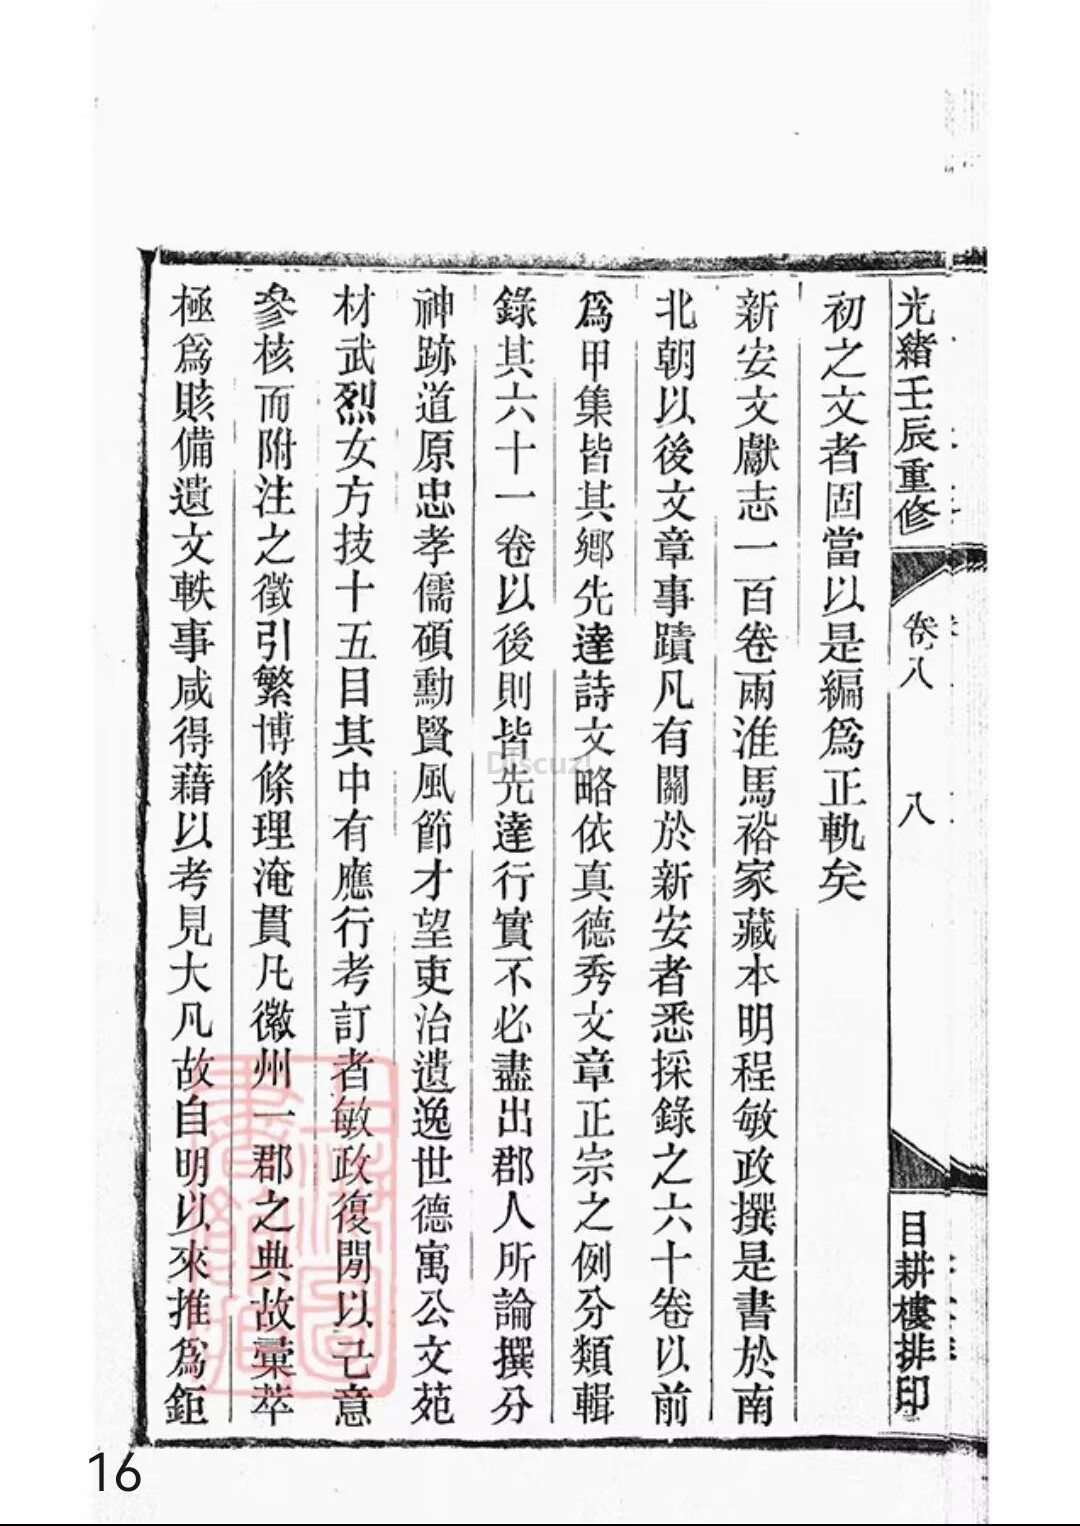 光緒壬辰重修
卷八
八
目耕樓排印
初之文者固當以是編爲正軌矣
新安文獻志一百卷兩淮馬裕家藏本明程敏政撰是書於南
北朝以後文章事蹟凡有關於新安者悉採錄之六十卷以前
爲甲集皆其鄉先達詩文略依真德秀文章正宗之例分類輯
錄其六十一卷以後則皆先達行實不必盡出郡人所論撰分
神跡道原忠孝儒碩勳賢風節才望吏治遺逸世德寓公文苑
材武烈女方技十五目其中有應行考訂者敏政復閒以己意
參核而附注之徵引繁博條理淹貫凡徽州一郡之典故彙萃
極爲賅備遺文軼事咸得藉以考見大凡故自明以來推爲鉅
Discuz!
16